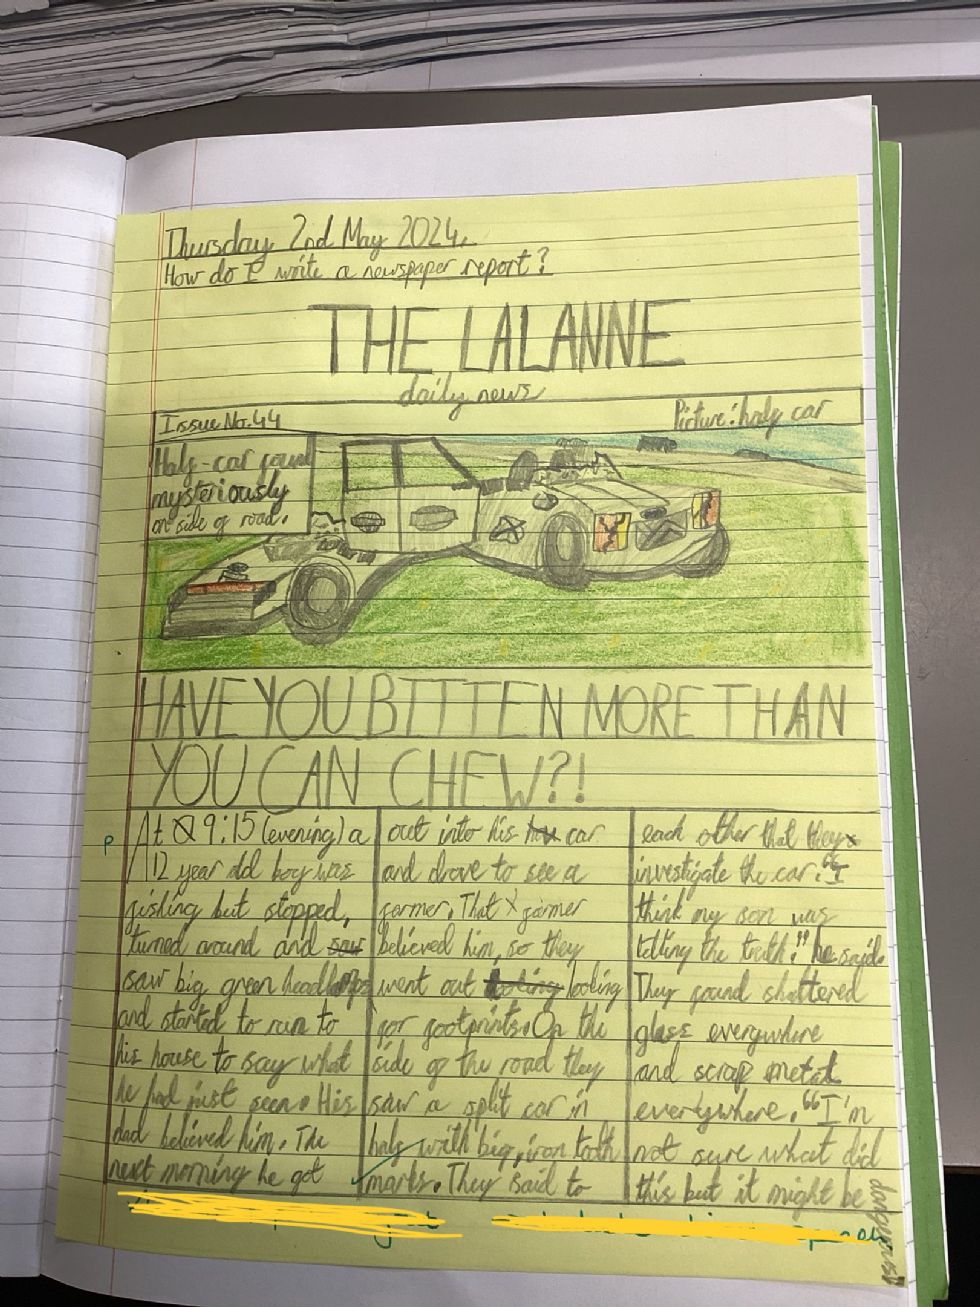 Thursday 2nd May 2024.
How do I write a newspaper report?
THE LALANNE
daily news
Issue No.44
Picture: half car
Half-car found
mysteriously
on side of road.
HAVE YOU BITTEN MORE THAN
YOU CAN CHEW?!
p
At 9:15 (evening) a
12 year old boy was
fishing but stopped,
turned around and saw
saw big green headlamps
and started to run to
his house to say what
he had just seen. His
dad believed him. The
next morning he got
out into his car
and drove to see a
farmer. That farmer
believed him, so they
went out looking
for footprints. On the
side of the road they
saw a split car in
half with big, iron tooth
marks. They said to
each other that they
investigate the car. "I
think my son was
telling the truth." he said.
They found shattered
glass everywhere
and scrap metal
everywhere. "I'm
not sure what did
this but it might be
dangerous!"